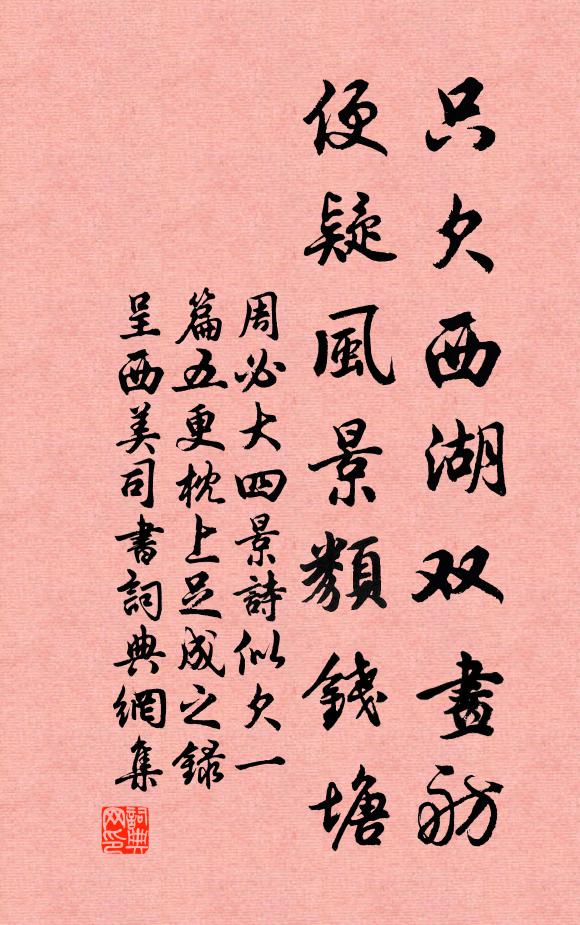 只欠西湖双畫舫
便疑風景類錢塘
周必大四景詩似欠一
篇五更枕上足成之録
呈西美司書詞典網集
詞典网印